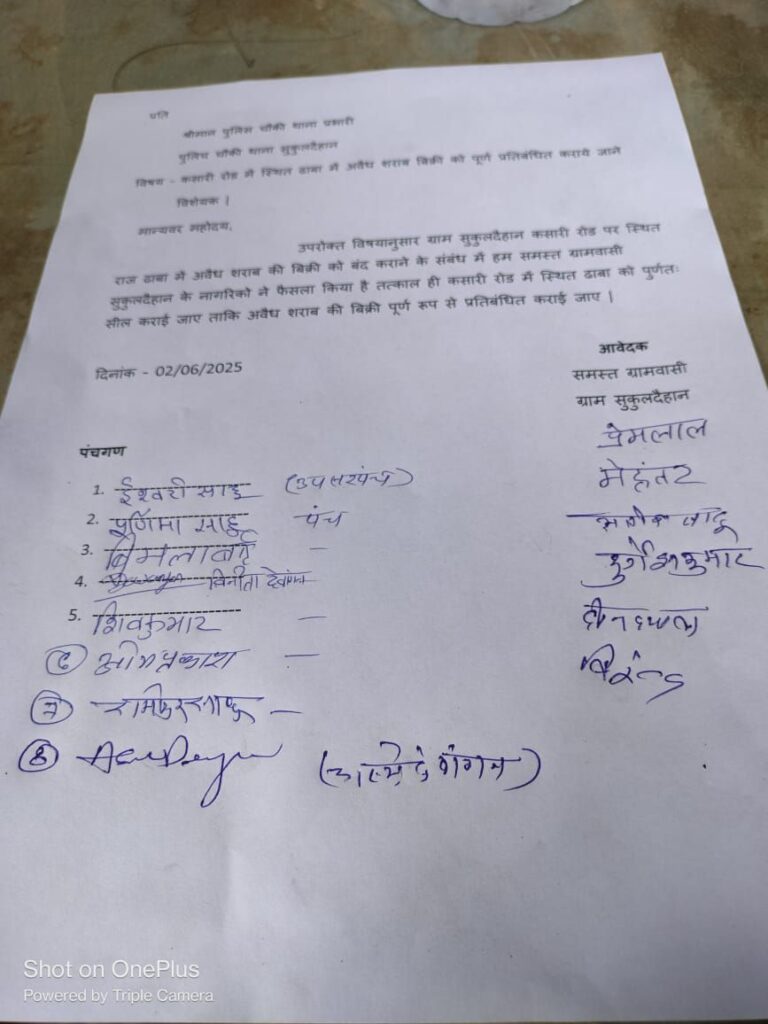 प्रति
श्रीमान पुलिस चौकी थाना प्रभारी
पुलिस चौकी थाना सुकुलदैहान
विषय - कसारी रोड में स्थित ढाबा में अवैध शराब बिक्री को पूर्ण प्रतिबंधित कराये जाने
विशेयक |
मान्यवर महोदय,
उपरोक्त विषयानुसार ग्राम सुकुलदैहान कसारी रोड पर स्थित
राज ढाबा में अवैध शराब की बिक्री को बंद कराने के संबंध में हम समस्त ग्रामवासी
सुकुलदैहान के नागरिको ने फैसला किया है तत्काल ही कसारी रोड में स्थित ढाबा को पुर्णतः
सील कराई जाए ताकि अवैध शराब की बिक्री पूर्ण रूप से प्रतिबंधित कराई जाए |
दिनांक - 02/06/2025
आवेदक
समस्त ग्रामवासी
ग्राम सुकुलदैहान
प्रेमलाल
मेहंतर
दुर्गेश कुमार
दीनदयाल
पंचगण
1. ईश्वरी साहू (उपसरपंच)
2. पूर्णिमा साहू पंच
3. बिमलाबाई –
4. विनीता देवांगन
5. शिवकुमार –
6 ओमप्रकाश –
7
8
Shot on OnePlus
Powered by Triple Camera